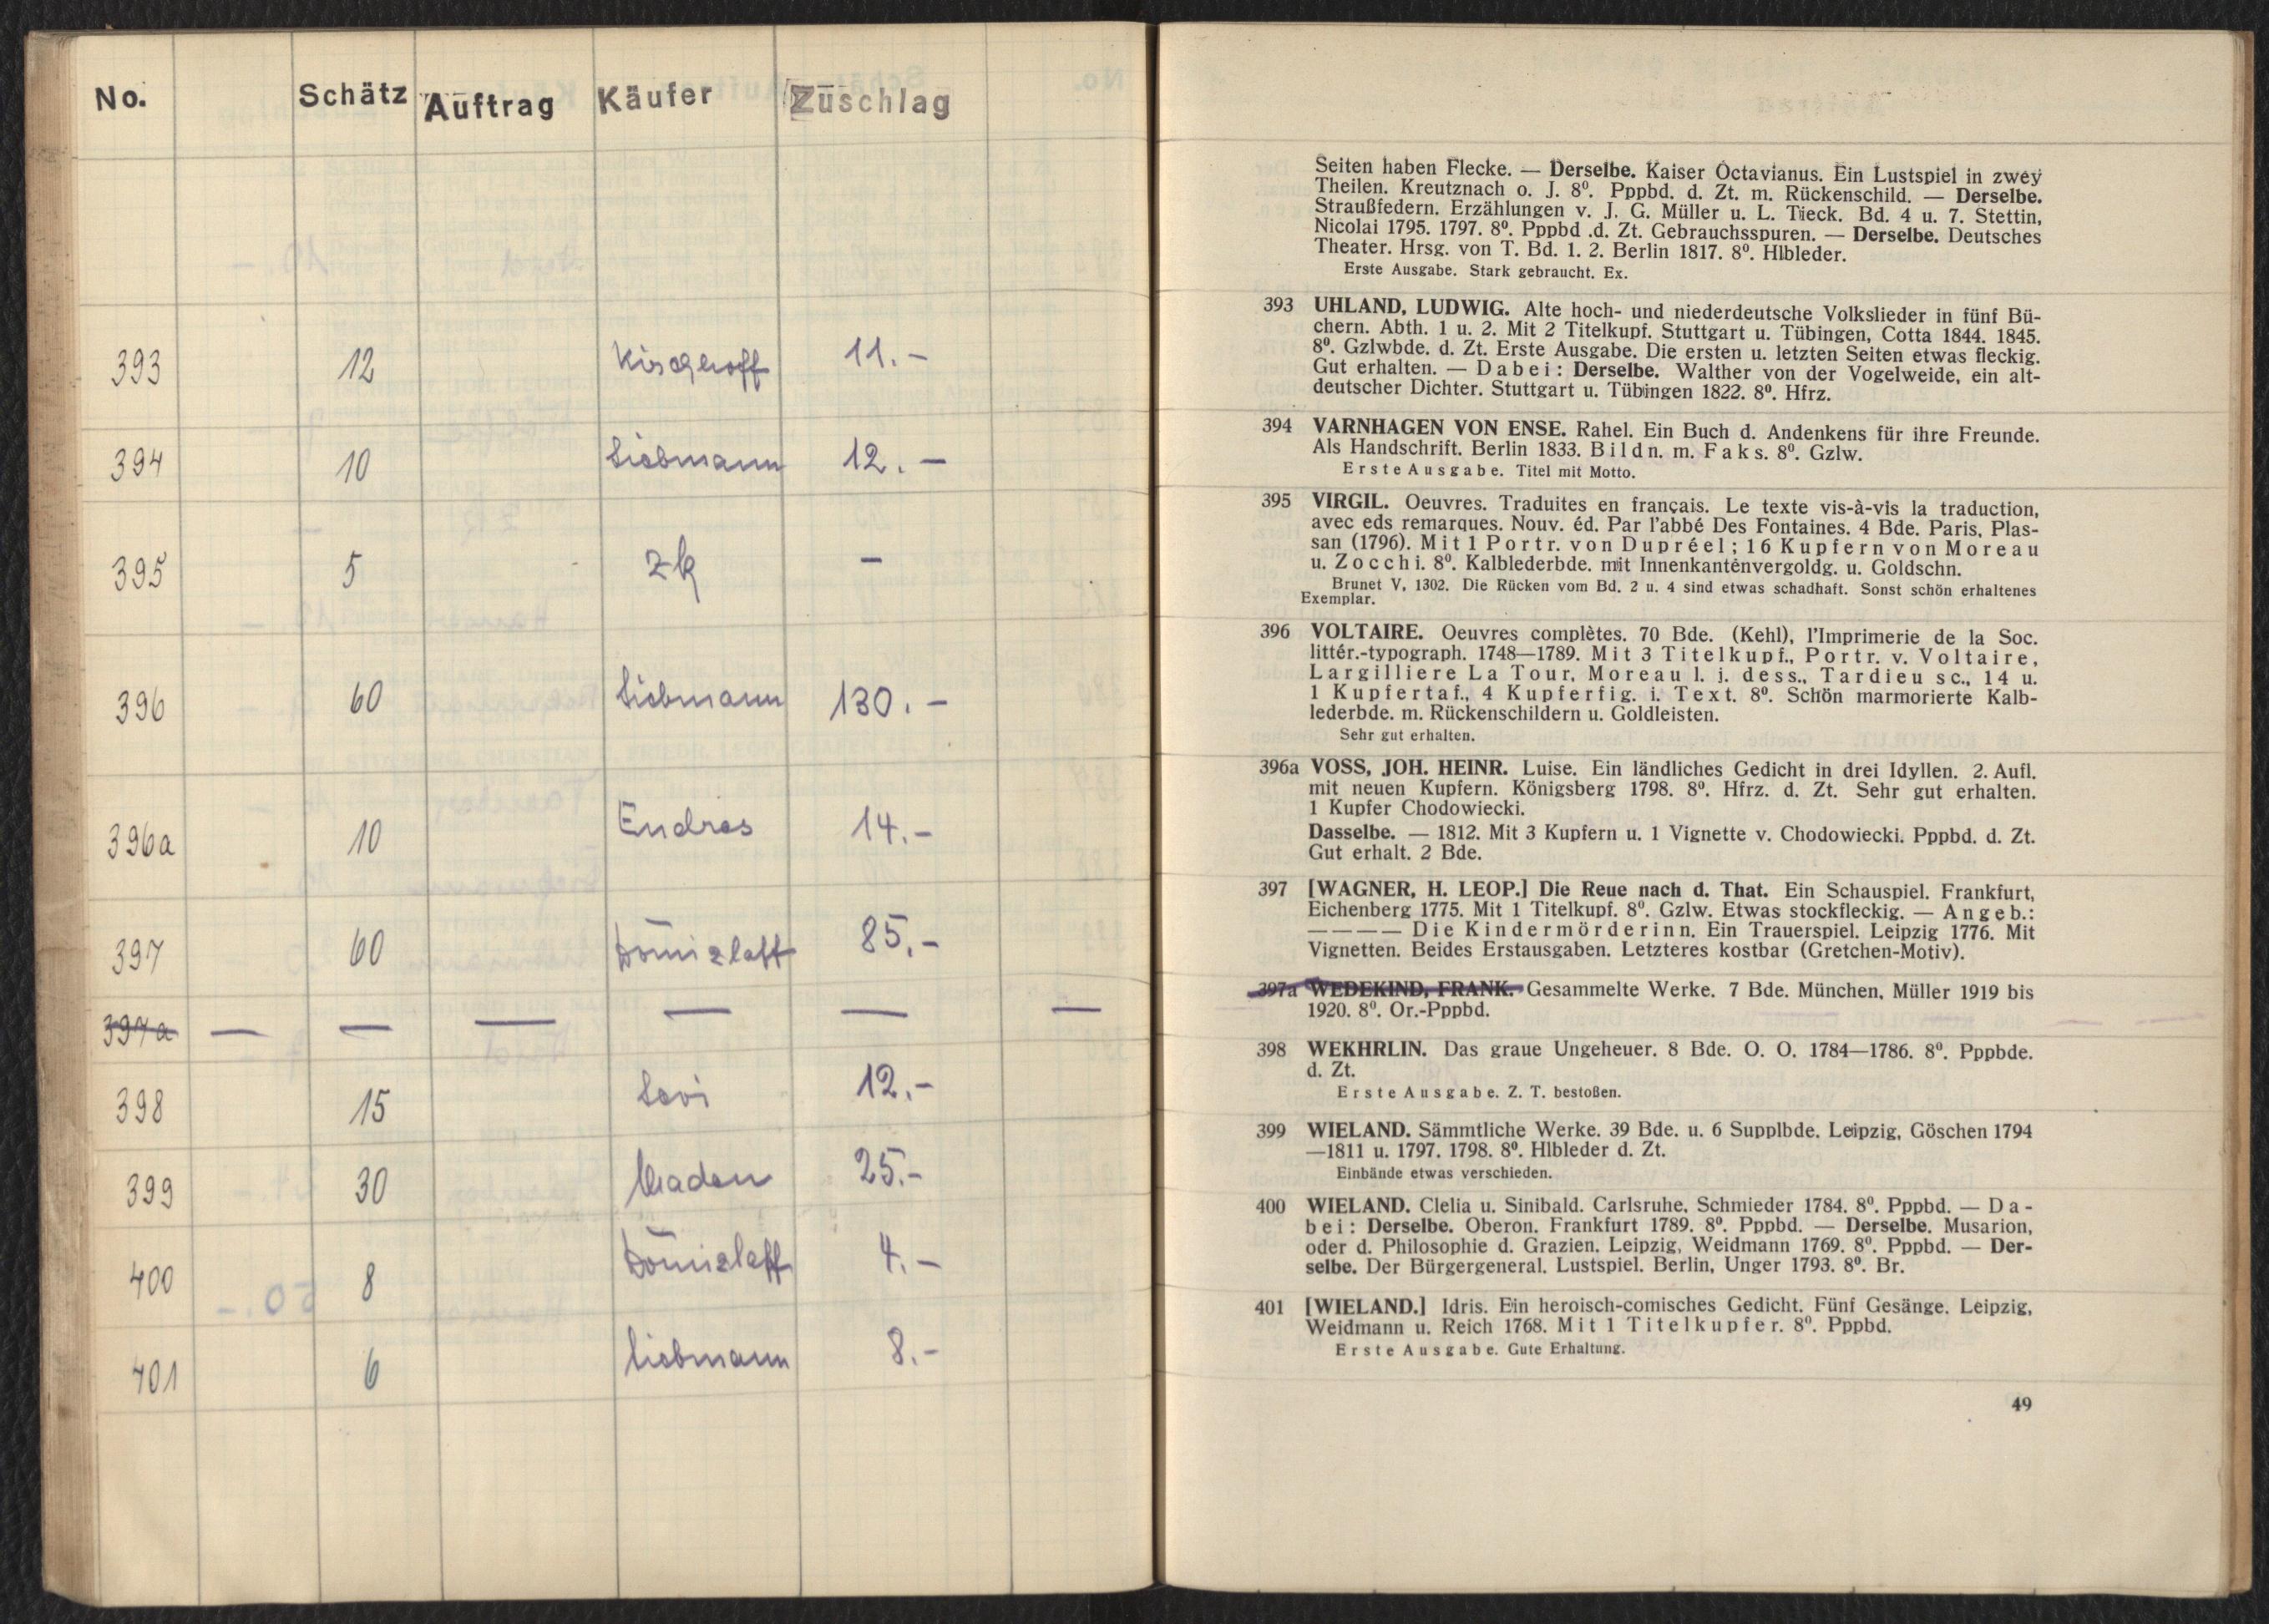 No. Schätz Auftrag Käufer Zuschlag
393 12 Kirchhoff 11.-
394 10 Liebmann 12.-
395 5 zk -
396 60 Liebmann 130.-
396a 10 Endres 14.-
397 60 Dömizlaff 85.-
397a — — — — — —
398 15 Levi 12.-
399 30 25.-
400 8 Dömizlaff 4.-
401 6 Liebmann 8.-
Seiten haben Flecke. — Derselbe. Kaiser Octavianus. Ein Lustspiel in zwey
Theilen. Kreutznach o. J. 8⁰. Pppbd. d. Zt. m. Rückenschild. — Derselbe.
Straußfedern. Erzählungen v. J. G. Müller u. L. Tieck. Bd. 4 u. 7. Stettin,
Nicolai 1795. 1797. 8⁰. Pppbd .d. Zt. Gebrauchsspuren. — Derselbe. Deutsches
Theater. Hrsg. von T. Bd. 1. 2. Berlin 1817. 8⁰. Hlbleder.
Erste Ausgabe. Stark gebraucht. Ex.
393 UHLAND, LUDWIG. Alte hoch- und niederdeutsche Volkslieder in fünf Bü-
chern. Abth. 1 u. 2. Mit 2 Titelkupf. Stuttgart u. Tübingen, Cotta 1844. 1845.
8⁰. Gzlwbde. d. Zt. Erste Ausgabe. Die ersten u. letzten Seiten etwas fleckig.
Gut erhalten. — Dabei: Derselbe. Walther von der Vogelweide, ein alt-
deutscher Dichter. Stuttgart u. Tübingen 1822. 8⁰. Hfrz.
394 VARNHAGEN VON ENSE. Rahel. Ein Buch d. Andenkens für ihre Freunde.
Als Handschrift. Berlin 1833. Bildn. m. Faks. 8⁰. Gzlw.
Erste Ausgabe. Titel mit Motto.
395 VIRGIL. Oeuvres. Traduites en français. Le texte vis-à-vis la traduction,
avec eds remarques. Nouv. éd. Par l'abbé Des Fontaines. 4 Bde. Paris, Plas-
san (1796). Mit 1 Portr. von Dupréel; 16 Kupfern von Moreau
u. Zocchi. 8⁰. Kalblederbde. mit Innenkantenvergoldg. u. Goldschn.
Brunet V, 1302. Die Rücken vom Bd. 2 u. 4 sind etwas schadhaft. Sonst schön erhaltenes
Exemplar.
396 VOLTAIRE. Oeuvres complètes. 70 Bde. (Kehl), l'Imprimerie de la Soc.
littér.-typograph. 1748—1789. Mit 3 Titelkupf., Portr. v. Voltaire,
Largilliere La Tour, Moreau l. j. dess., Tardieu sc., 14 u.
1 Kupfertaf., 4 Kupferfig. i. Text. 8⁰. Schön marmorierte Kalb-
lederbde. m. Rückenschildern u. Goldleisten.
Sehr gut erhalten.
396a VOSS, JOH. HEINR. Luise. Ein ländliches Gedicht in drei Idyllen. 2. Aufl.
mit neuen Kupfern. Königsberg 1798. 8⁰. Hfrz. d. Zt. Sehr gut erhalten.
1 Kupfer Chodowiecki.
Dasselbe. — 1812. Mit 3 Kupfern u. 1 Vignette v. Chodowiecki. Pppbd. d. Zt.
Gut erhalt. 2 Bde.
397 [WAGNER, H. LEOP.] Die Reue nach d. That. Ein Schauspiel. Frankfurt,
Eichenberg 1775. Mit 1 Titelkupf. 8⁰. Gzlw. Etwas stockfleckig. — Angeb.:
———— Die Kindermörderinn. Ein Trauerspiel. Leipzig 1776. Mit
Vignetten. Beides Erstausgaben. Letzteres kostbar (Gretchen-Motiv).
397a WEDEKIND, FRANK. Gesammelte Werke. 7 Bde. München, Müller 1919 bis
1920. 8⁰. Or.-Pppbd.
398 WEKHRLIN. Das graue Ungeheuer. 8 Bde. O. O. 1784—1786. 8⁰. Pppbde.
d. Zt.
Erste Ausgabe. Z. T. bestoßen.
399 WIELAND. Sämmtliche Werke. 39 Bde. u. 6 Supplbde. Leipzig, Göschen 1794
—1811 u. 1797. 1798. 8⁰. Hlbleder d. Zt.
Einbände etwas verschieden.
400 WIELAND. Clelia u. Sinibald. Carlsruhe, Schmieder 1784. 8⁰. Pppbd. — Da-
bei: Derselbe. Oberon. Frankfurt 1789. 8⁰. Pppbd. — Derselbe. Musarion,
oder d. Philosophie d. Grazien. Leipzig, Weidmann 1769. 8⁰. Pppbd. — Der-
selbe. Der Bürgergeneral. Lustspiel. Berlin, Unger 1793. 8⁰. Br.
401 [WIELAND.] Idris. Ein heroisch-comisches Gedicht. Fünf Gesänge. Leipzig,
Weidmann u. Reich 1768. Mit 1 Titelkupfer. 8⁰. Pppbd.
Erste Ausgabe. Gute Erhaltung.
49